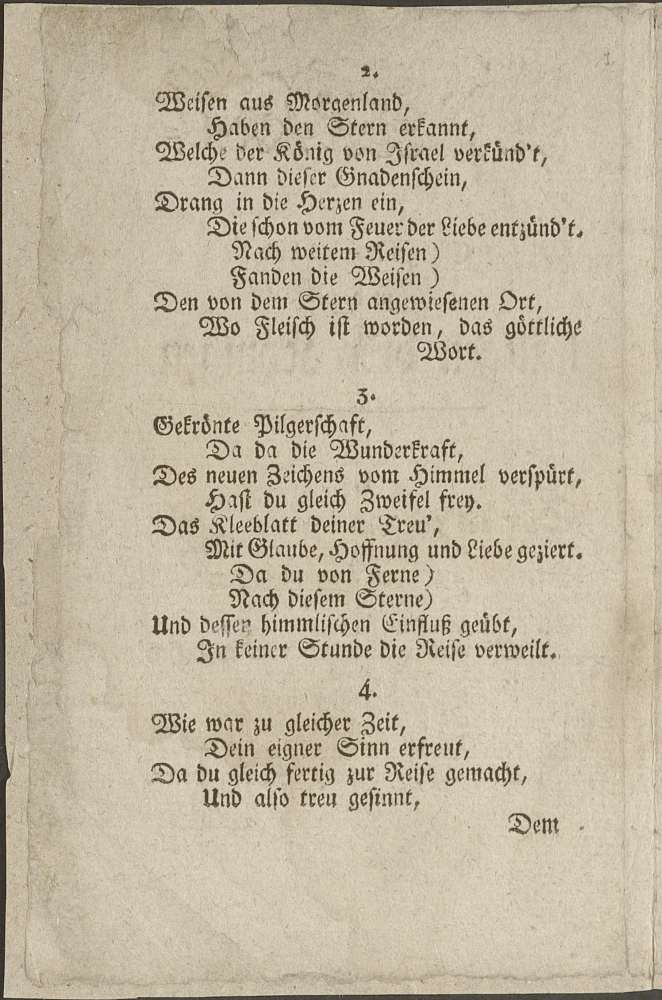 2.
Weisen aus Morgenland,
Haben den Stern erkannt,
Welche der König von Israel verkünd't,
Dann dieser Gnadenschein,
Drang in die Herzen ein,
Die schon vom Feuer der Liebe entzünd't.
Nach weitem Reisen)
Fanden die Weisen)
Den von dem Stern angewiesenen Ort,
Wo Fleisch ist worden, das göttliche
Wort.
3.
Gekrönte Pilgerschaft,
Da da die Wunderkraft,
Des neuen Zeichens vom Himmel verspürt,
Hast du gleich Zweifel frey.
Das Kleeblatt deiner Treu',
Mit Glaube, Hoffnung und Liebe geziert.
Da du von Ferne)
Nach diesem Sterne)
Und dessen himmlischen Einfluß geübt,
In keiner Stunde die Reise verweilt.
4.
Wie war zu gleicher Zeit,
Dein eigner Sinn erfreut,
Da du gleich fertig zur Reise gemacht,
Und also treu gesinnt,
Dem